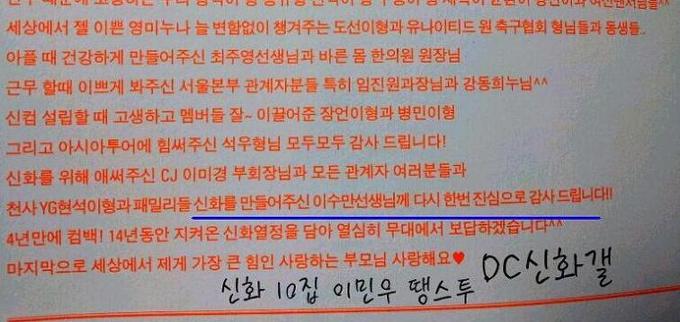 세상에서 젤 이쁜 영미누나 늘 변함없이 챙겨주는 도선이형과 유나이티드 원 축구협회 형님들과 동생들..
아플 때 건강하게 만들어주신 최주영선생님과 바른 몸 한의원 원장님
근무 할때 이쁘게 봐주신 서울본부 관계자분들 특히 임진원과장님과 강동희누님^^
신컴 설립할 때 고생하고 멤버들 잘~ 이끌어준 장언이형과 병민이형
그리고 아시아투어에 힘써주신 석우형님 모두모두 감사 드립니다!
신화를 위해 애써주신 CJ 이미경 부회장님과 모든 관계자 여러분들과
천사 YG현석이형과 패밀리들 신화를 만들어주신 이수만선생님께 다시 한번 진심으로 감사 드립니다!!
4년만에 컴백! 14년동안 지켜온 신화열정을 담아 열심히 무대에서 보답하겠습니다^^
마지막으로 세상에서 제게 가장 큰 힘인 사랑하는 부모님 사랑해요♥
신화 10집 이민우 땡스투 DC신화갤